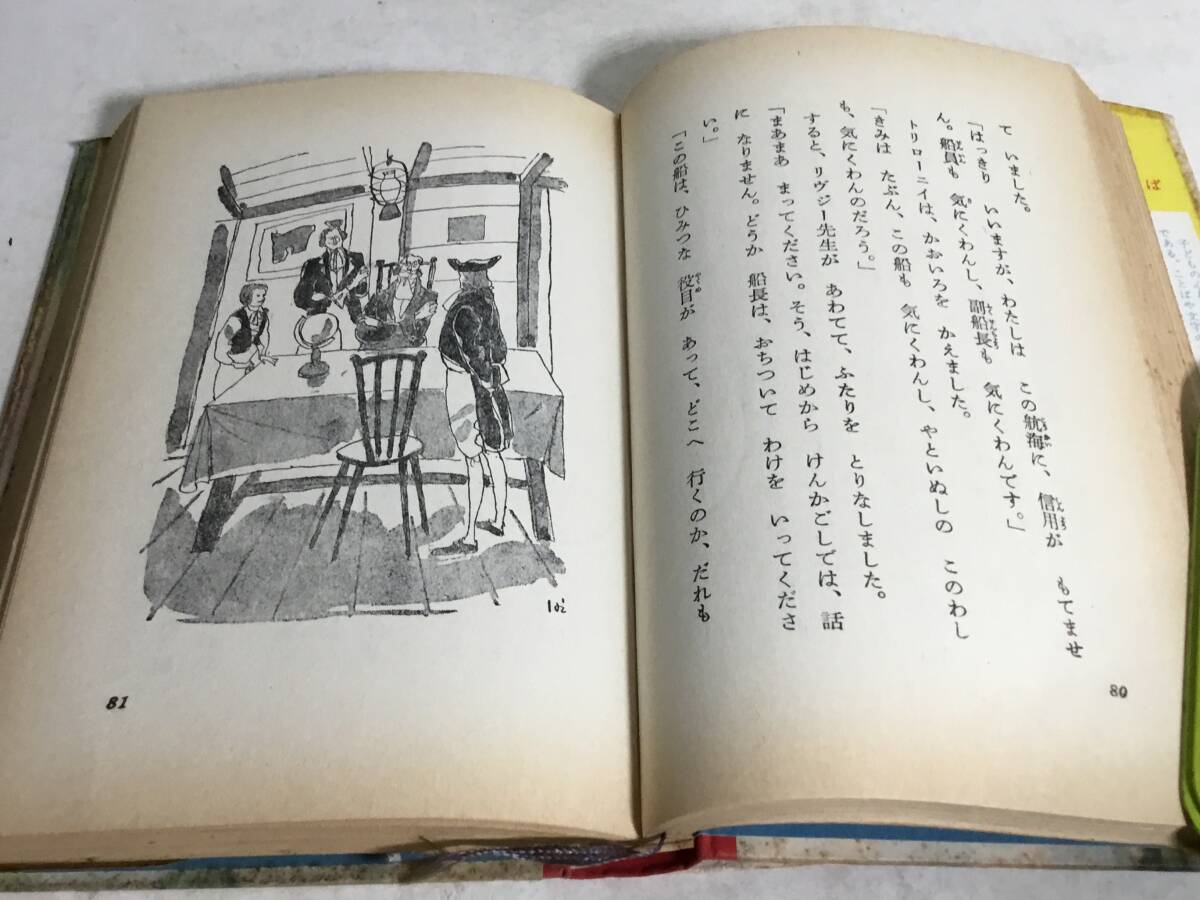 て いました。
「はっきり いいますが、わたしは この航海に、信用が もてませ
ん。船員も 気にくわんし、副船長も 気にくわんです。」
トリローニイは、かおいろを かえました。
「きみは たぶん、この船も 気にくわんし、やといぬしの このわし
も、気にくわんのだろう。」
すると、リヴジー先生が あわてて、ふたりを とりなしました。
「まあまあ まってください。そう、はじめから けんかごしでは、話
に なりません。どうか 船長は、おちついて わけを いってくださ
い。」
「この船は、ひみつな 役目が あって、どこへ 行くのか、だれも
80
81
ば